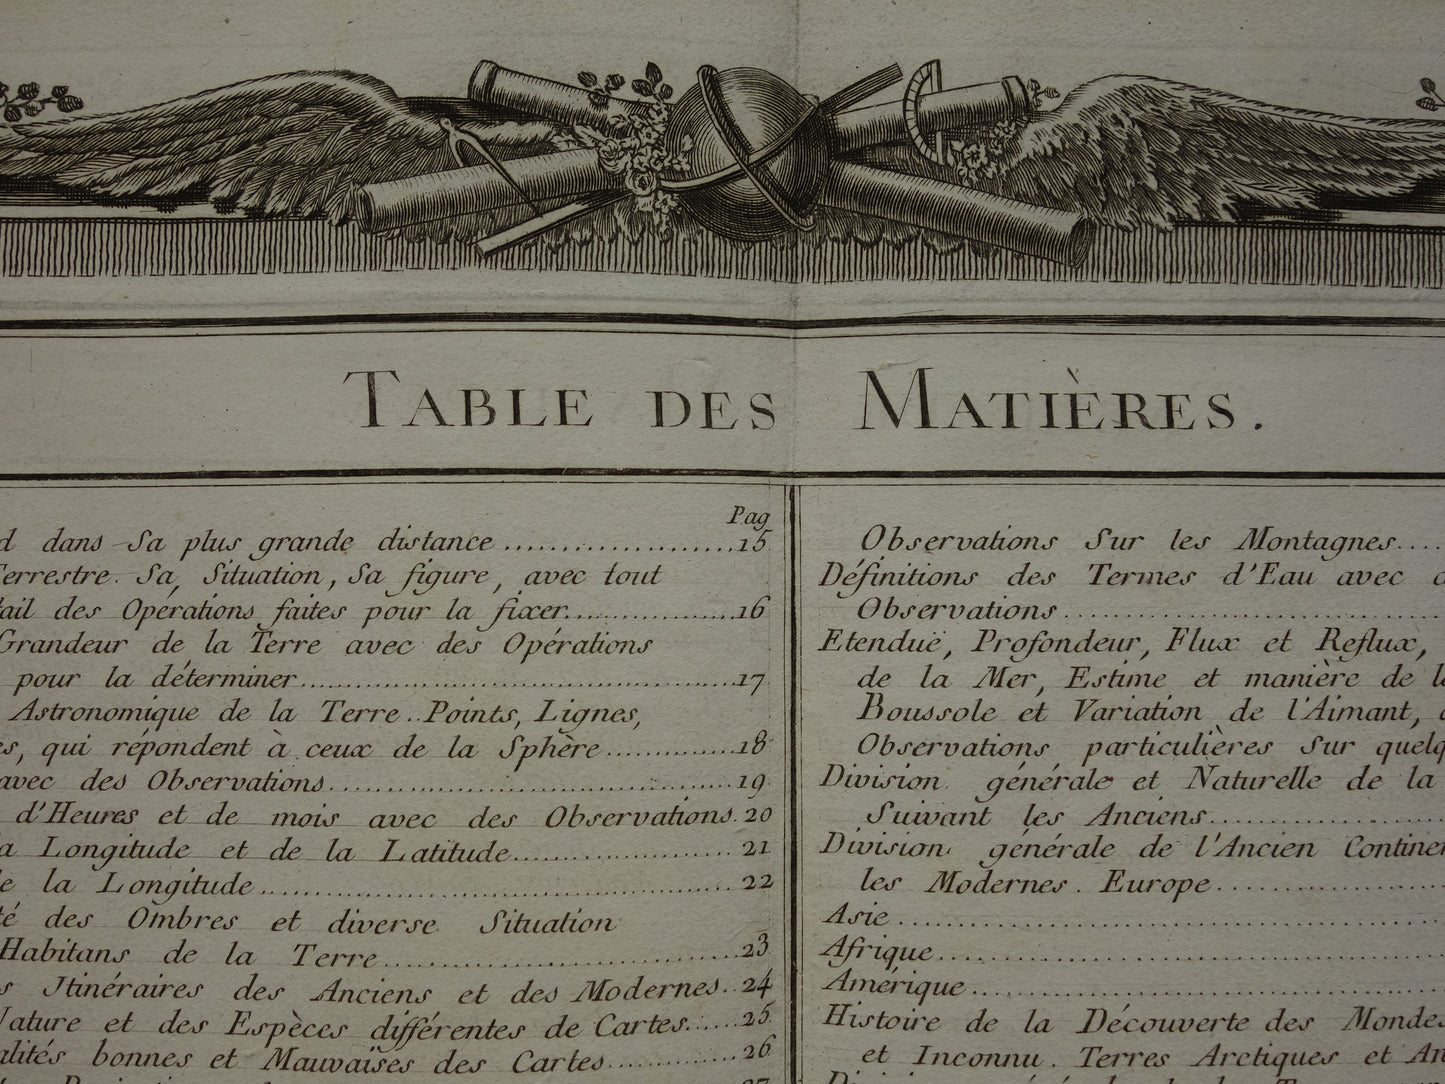 TABLE DES MATIÈRES.
Pag
dans Sa plus grande distance 15
Terrestre. Sa Situation, Sa figure, avec tout
des Opérations faites pour la fixer 16
Grandeur de la Terre avec des Opérations
pour la déterminer 17
Astronomique de la Terre. Points, Lignes,
qui répondent à ceux de la Sphère 18
avec des Observations 19
d'Heures et de mois avec des Observations. 20
Longitude et de la Latitude 21
de la Longitude 22
des Ombres et diverse Situation
Habitans de la Terre 23
Itinéraires des Anciens et des Modernes 24
Nature et des Espèces différentes de Cartes 25
bonnes et Mauvaises des Cartes 26
Observations Sur les Montagnes
Définitions des Termes d'Eau avec
Observations
Etenduë, Profondeur, Flux et Reflux,
de la Mer, Estime et manière de
Boussole et Variation de l'Aimant,
Observations particulières Sur
Division générale et Naturelle de la
Suivant les Anciens
Division générale de l'Ancien
les Modernes. Europe
Asie
Afrique
Amérique
Histoire de la Découverte des
et Inconnu. Terres Arctiques et